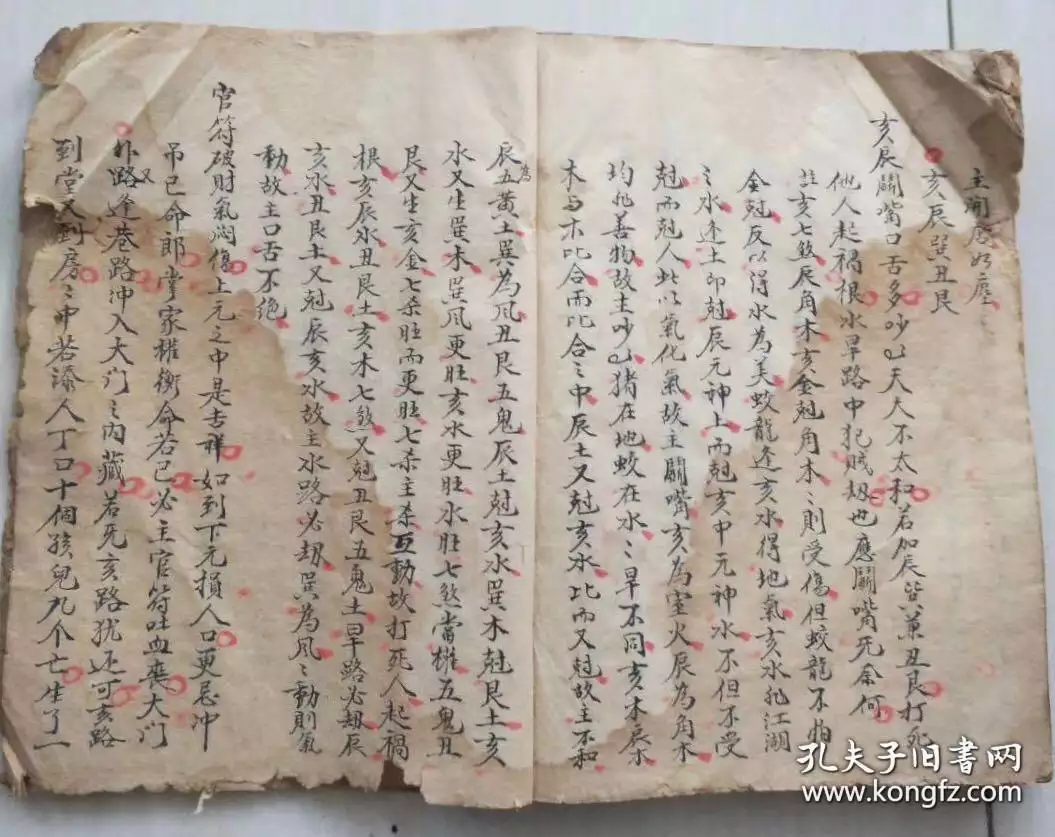 主開
亥辰巽丑艮
亥辰鬭嘴口舌多吵乜天大不太和若加辰巽兼丑艮打死
他人起禍根水旱路中犯賊刼也應鬭嘴死奈何
註亥七煞辰角木亥金尅角木〻則受傷但蛟龍不怕
金尅反以得水為美蛟龍逢亥水得地氣亥水非江湖
之水逢土即尅辰元神上而尅亥中元神水不但不受
尅而尅人此以氣化氣故主鬭嘴亥為室火辰為角木
均非善物故主吵乜猪在地蛟在水〻旱不同亥木辰木
木与木比合而比合之中辰土又尅亥水比而又尅故主不和
辰為五黃土巽為風丑艮五鬼辰土尅亥水巽木尅艮土亥
水又生巽木巽風更旺亥水更旺水旺七煞當權五鬼丑
艮又生亥金七杀旺而更旺七杀主杀互動故打死人起禍
根亥辰水丑艮土亥木七煞又尅丑艮五鬼土旱路必刼辰
亥水丑艮土又尅辰亥水故主水路必刼巽為風〻動則氣
動故主口舌不絶
官符破財氣悶傷上元之中是吉祥如到下元損人口更忌冲
吊已命郎掌家權衡命若已必主官符吐血喪大门
外路又逢巷路冲入大门之内藏若死亥路犹还可亥路
到堂又到房〻中若添人丁口十個孩兒九个亡生了一
孔夫子旧书网
www.kongfz.com